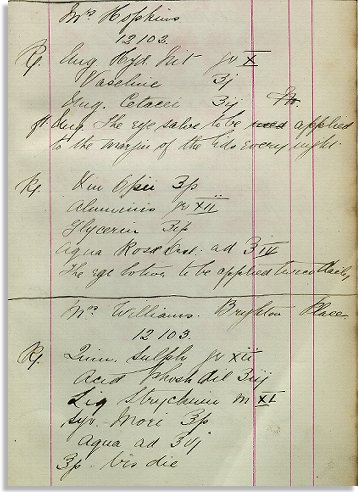 Mrs Hopkins
12103.
Rx Ung Hyd. Nit gr X
Vaseline ʒj
Ung. Cetacei ʒij
ft Ung. The eye salve to be used applied
to the margin of the lids every night.
Rx Vin Opii ʒp
Aluminis gr XII
Glycerin ʒip
Aqua Rosæ ad ʒIV
The eye lotion, to be applied twice daily
Mrs Williams. Brighton Place
12103.
Rx Quin. Sulph gr xii
Acid Phosh dil ʒiij
Liq Strychnin m XL
Syr. Mori ʒp
Aqua ad ʒvj
ʒp. bis die